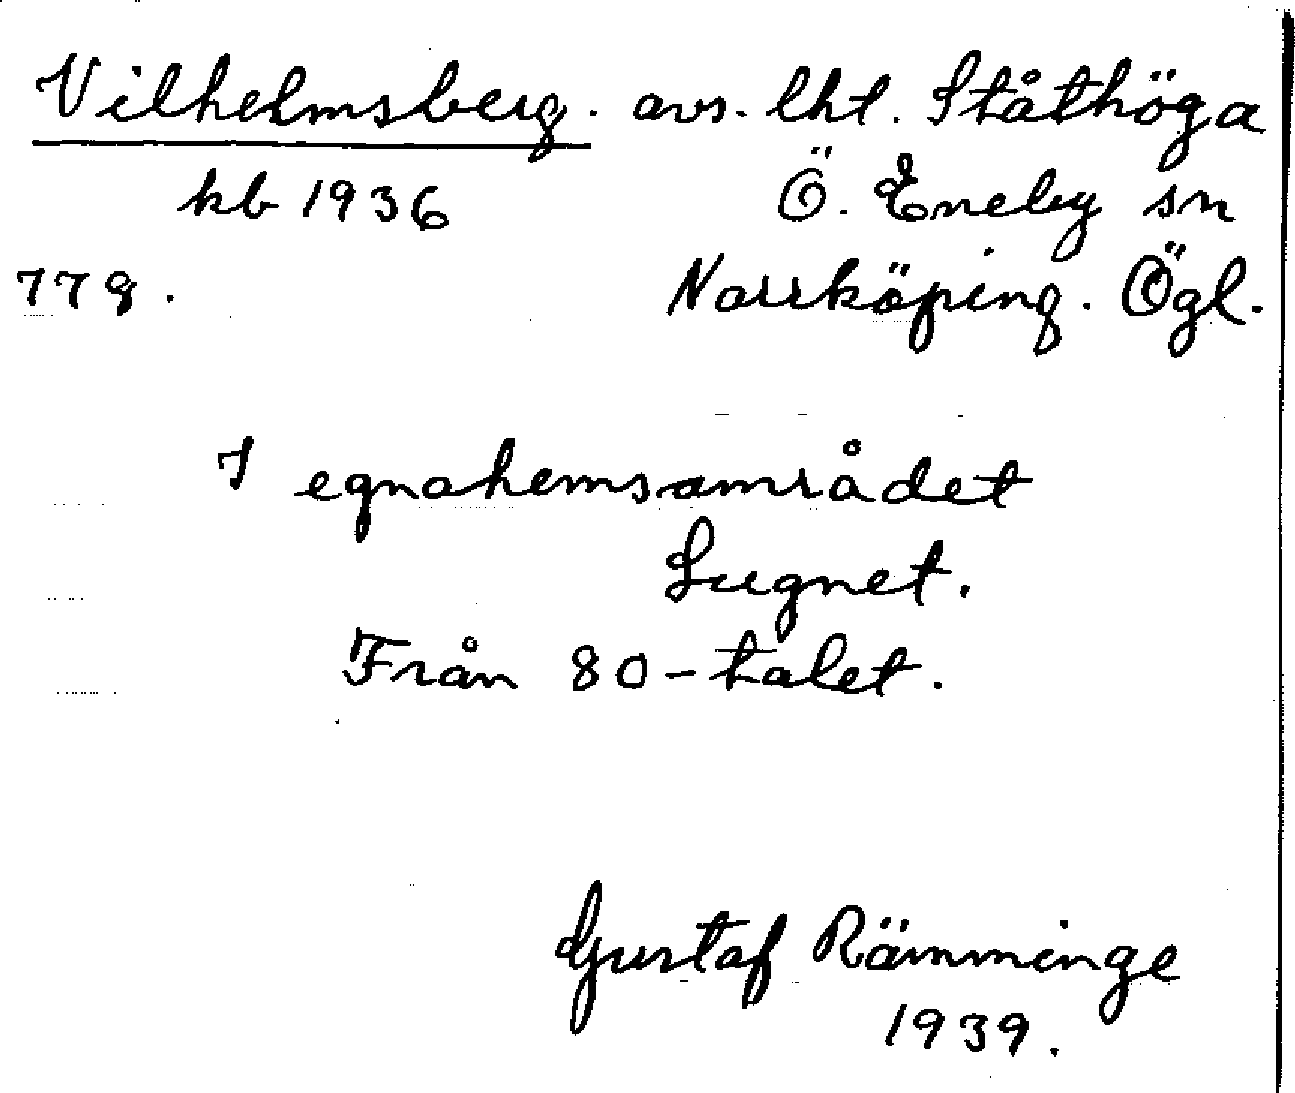 Vilhelmsberg. avs. lht. Ståthöga
kb 1936 Ö. Eneby sn
778. Norrköping. Ögl.
I egnahemsområdet
Lugnet.
Från 80-talet.
Gustaf Rämminge
1939.